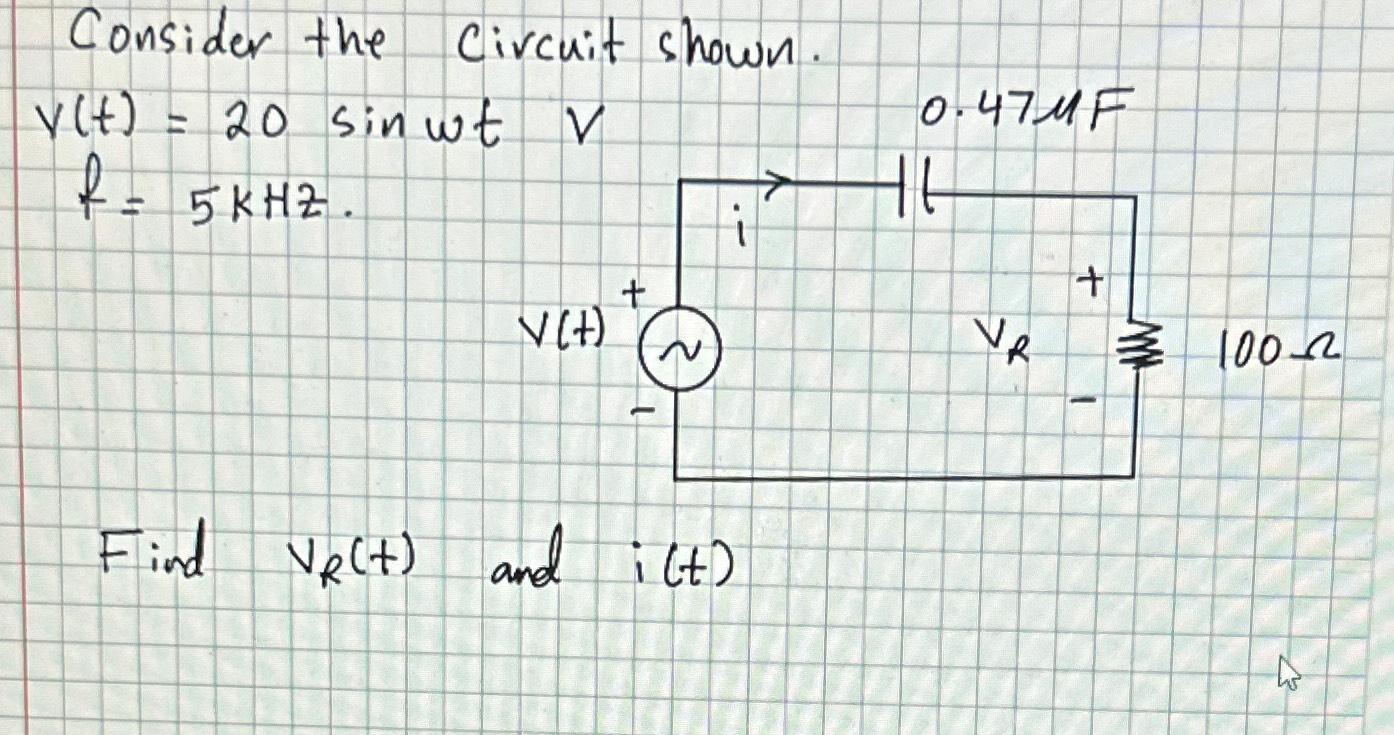 Consider the circuit shown.
v(t) = 20 sin wt V
0.47 μF
f = 5 kHz.
i
+
+
v(t)
VR
100 Ω
-
-
Find VR(t) and i(t)